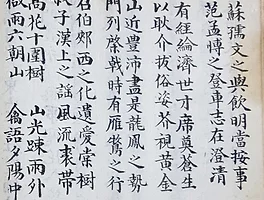 蘇孺文之與飲明當按事
范孟博之登車志在澄清
有經綸濟世才席奠蒼生
以耿介拔俗姿芥視黄金
山近豊沛盡是龍鳳之勢
門列棨戟時有雁鶩之行
召伯郊西之化遺愛棠樹
子漢上之謡風流裘帶
花十圍樹 山光疎雨外
雨六朝山 禽語夕陽中